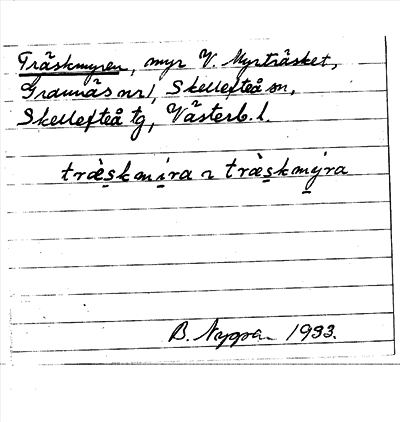 Träskmyren, myr V. Myrträsket,
Grannäs nr 1, Skellefteå sn,
Skellefteå tg, Västerb. l.
træ̀skmíra ~ træ̀skmýra
B. Nygren 1933.